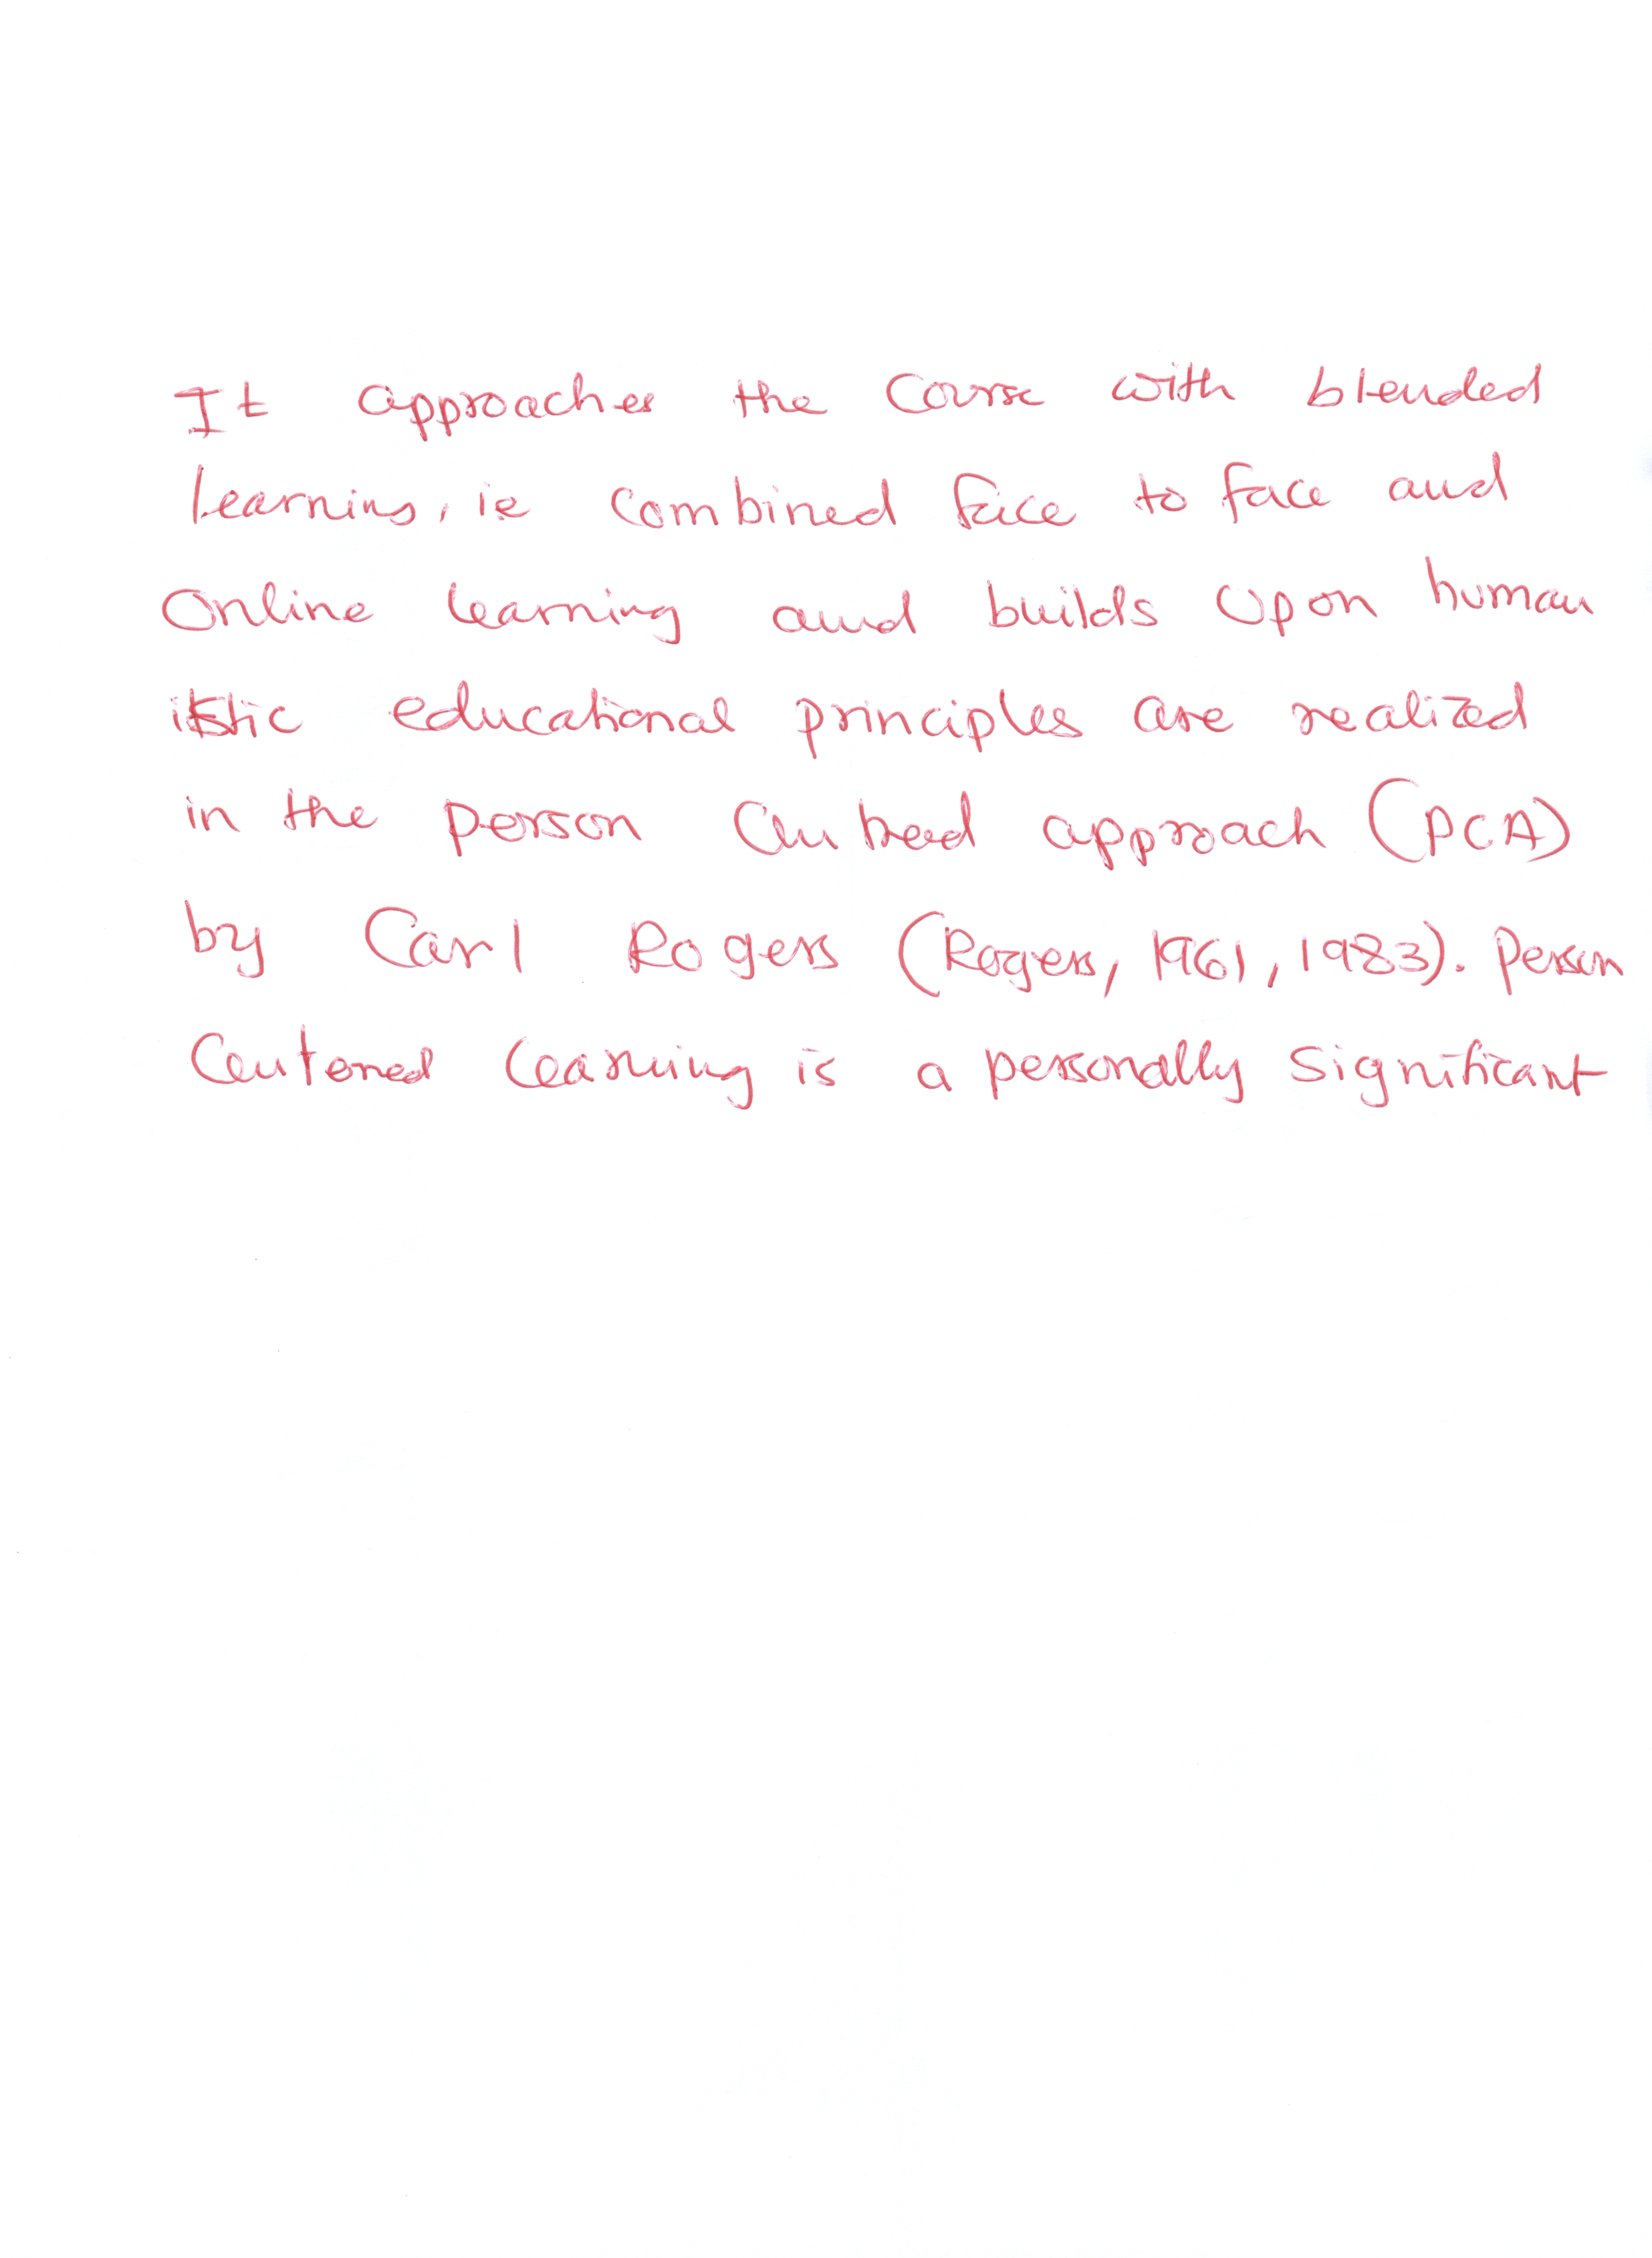 It approaches the Course with blended
learning, ie combined face to face and
Online learning and builds Upon human
istic educational principles are realized
in the person Centred approach (PCA)
by Carl Rogers (Rogers, 1961, 1983). person
Centered learning is a personally significant